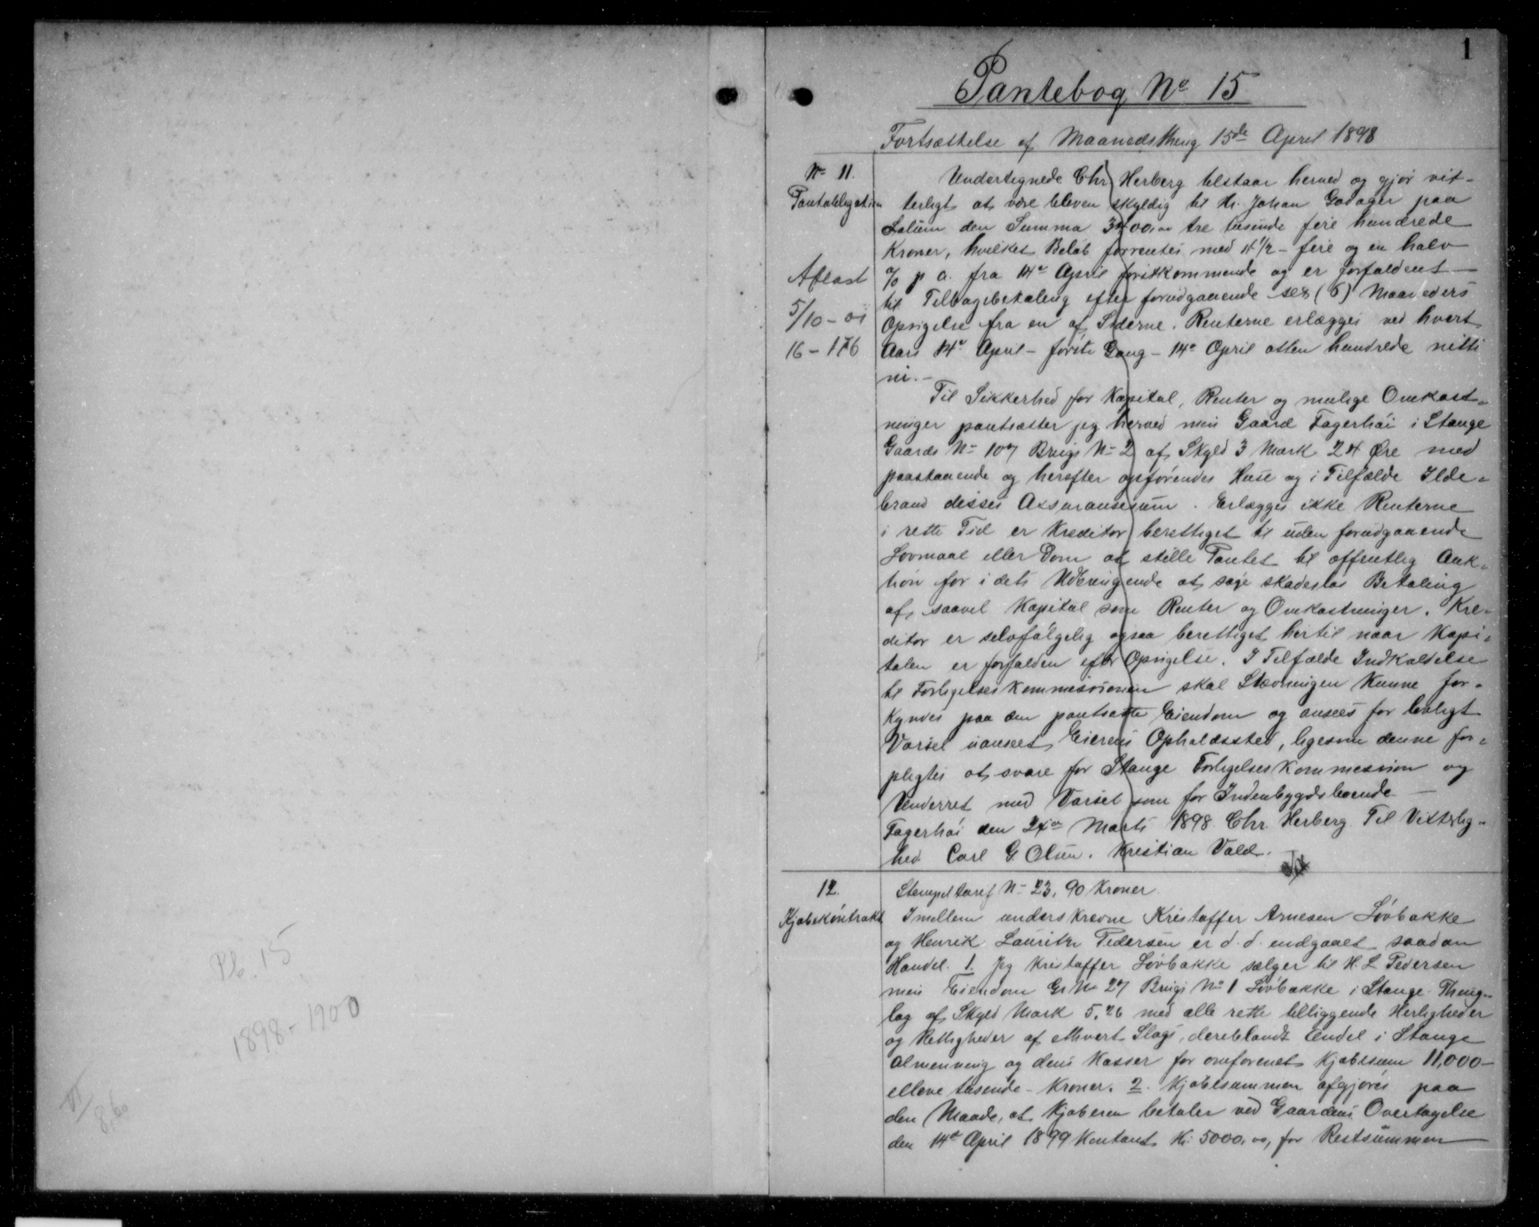 1
Pantebog No 15
Fortsættelse af Maanedsthing 15de April 1898
No 11.
Pantobligation
Aflæst
5/10-01
16-176
Undertegnede Chr Herberg tilstaar herved og gjør vit-
terligt at være bleven skyldig til Hr. Johan Gaxager paa
den Summa 3400,00 tre tusinde fire hundrede
Kroner, hvilket Beløb forrentes med 4 1/2 - fire og en halv
% p a. fra 14de April førstkommende og er forfaldent
til Tilbagebetaling efter forudgaaende sex (6) Maaneders
Opsigelse fra en af Siderne. Renterne erlægges ved hvert
Aars 14de April - første Gang - 14de April atten hundrede nitti
ni.-
Til Sikkerhed for Kapital, Renter og mulige Omkost-
ninger pantsætter jeg herved min Gaard Fagerhøi i Stange
Gaards No 107 Brugs No 2 af Skyld 3 Mark 24 Øre med
paastaaende og herefter opførendes Huse og i Tilfælde Ilde-
brand disses Assuransesum. Erlægges ikke Renterne
i rette Tid er Kreditor berettiget til uden forudgaaende
Lovmaal eller Dom at stille Pantet til offentlig Auk-
tion for i dets Udbringende at søge skadesløs Betaling
af saavel Kapital som Renter og Omkostninger. Kre-
ditor er selvfølgelig ogsaa berettiget hertil naar Kapi-
talen er forfalden efter Opsigelse. I Tilfælde Indkaldelse
til Forligelseskommissionen skal Stævningen kunne for-
kyndes paa den pantsatte Eiendom og ansees for lovligt
Varsel uanseet Eierens Opholdssted, ligesom denne for-
pligtes at svare for Stange Forligelseskommission og
Underret med Varsel som for Indenbygdsboende
Fagerhøi den 24de Marts 1898. Chr. Herberg. Til Vitterlig-
hed Carl G Olsen. Kristian Vald.
12.
Kjøbekontrakt
Stempeltaxt No 23, 90 Kroner.
Imellem underskrevne Kristoffer Arnesen Løvbakke
og Henrik Lauritz Pedersen er d. d. indgaaet saadan
Handel. 1. Jeg Kristoffer Løvbakke sælger til H. L Pedersen
min Eiendom Gr No 27 Brugs No 1 Løvbakke i Stange Thing-
lag af Skyld Mark 5,26 med alle rette tilliggende Herligheder
og Rettigheder af ethvert Slags, deriblandt Andel i Stange
Almenning og dens Kasser for omforenet Kjøbesum 11,000-
elleve tusende - Kroner. 2. Kjøbesummen afgjøres paa
den Maade, at Kjøberen betaler ved Gaardens Overtagelse
den 14de April 1899 Kontant Kr 5000,00, for Restsummen
Pb. 15
1898-1900